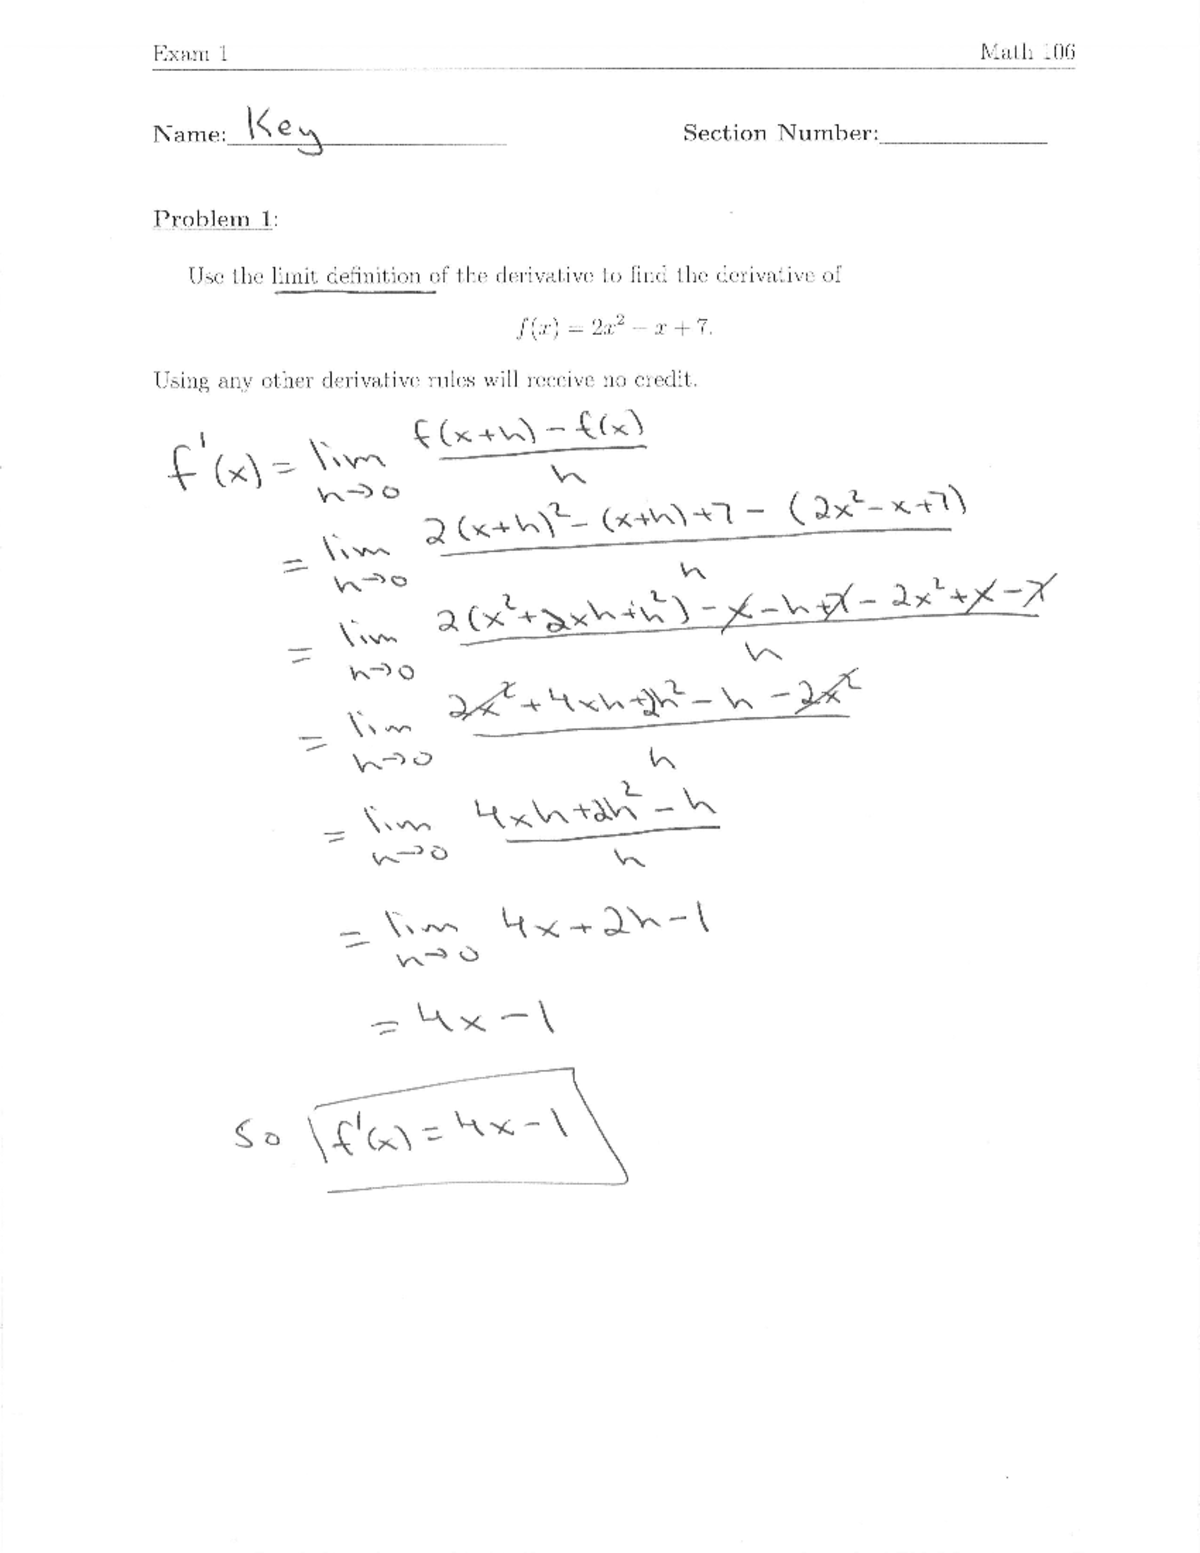 Exam 1 Math 106
Name: Key Section Number:
Problem 1:
Use the limit definition of the derivative to find the derivative of
f(x) = 2x² − x + 7.
Using any other derivative rules will receive no credit.
f'(x) = lim h→0 f(x+h) − f(x) / h
= lim h→0 2(x+h)² − (x+h) + 7 − (2x² − x + 7) / h
= lim h→0 2(x² + 2xh + h²) − x − h + 7 − 2x² + x − 7 / h
= lim h→0 2x² + 4xh + 2h² − h − 2x² / h
= lim h→0 4xh + 2h² − h / h
= lim h→0 4x + 2h − 1
= 4x − 1
So f'(x) = 4x − 1